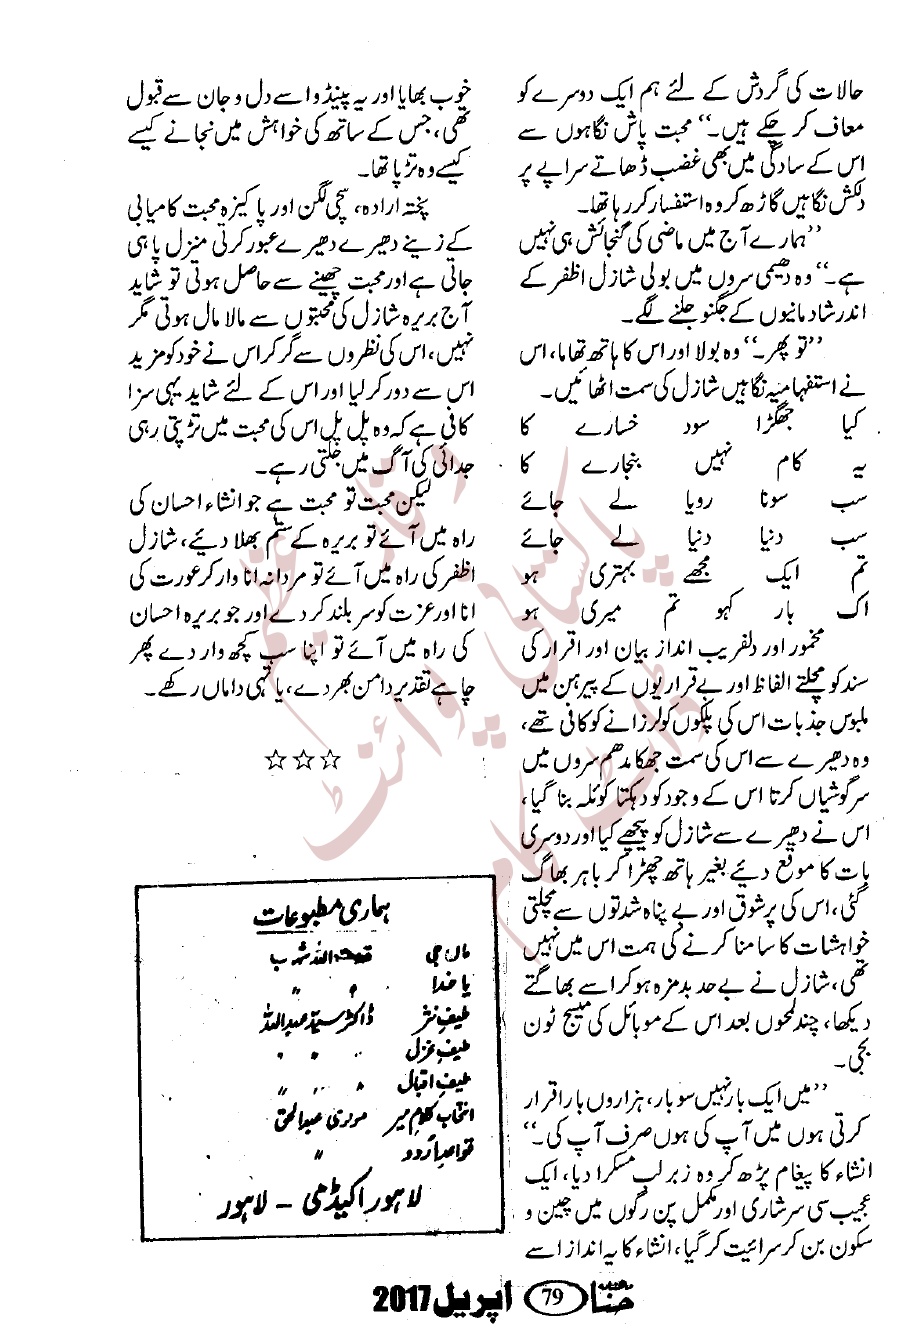 حالات کی گردش کے لئے ہم ایک دوسرے کو
معاف کر چکے ہیں۔‘‘ محبت پاش نگاہوں سے
اس کے سادگی میں بھی غضب ڈھاتے سراپے پر
دلکش نگاہیں گاڑھ کر وہ استفسار کر رہا تھا۔
’’ہمارے آج میں ماضی کی گنجائش ہی نہیں
ہے۔‘‘ وہ دھیمی سروں میں بولی شازل اظفر کے
اندر شادمانیوں کے جگنو جلنے لگے۔
’’تو پھر۔‘‘ وہ بولا اور اس کا ہاتھ تھاما، اس
نے استفہامیہ نگاہیں شازل کی سمت اٹھائیں۔
کیا جھگڑا سود خسارے کا
یہ کام نہیں بنجارے کا
سب سونا روپا لے جائے
سب دنیا دنیا لے جائے
تم ایک مجھے بہتری ہو
اک بار کہو تم میری ہو
مخمور اور دلفریب انداز بیان اور اقرار کی
سند کو مچلتے الفاظ اور بے قراریوں کے پیرہن میں
ملبوس جذبات اس کی پلکوں کو لرزانے کو کافی تھے،
وہ دھیرے سے اس کی سمت جھکا مدھم سروں میں
سرگوشیاں کرتا اس کے وجود کو دہکتا کوئلہ بنا گیا،
اس نے دھیرے سے شازل کو پیچھے کیا اور دوسری
بات کا موقع دیئے بغیر ہاتھ چھڑا کر باہر بھاگ
گئی، اس کی پرشوق اور بے پناہ شدتوں سے مچلتی
خواہشات کا سامنا کرنے کی ہمت اس میں نہیں
تھی، شازل نے بے حد بدمزہ ہو کر اسے بھاگتے
دیکھا، چند لمحوں بعد اس کے موبائل کی میسج ٹون
بجی۔
’’میں ایک بار نہیں سو بار، ہزاروں بار اقرار
کرتی ہوں میں آپ کی ہوں صرف آپ کی۔‘‘
انشاء کا پیغام پڑھ کر وہ زیر لب مسکرا دیا، ایک
عجیب سی سرشاری اور مکمل پن رگوں میں چین و
سکون بن کر سرائیت کر گیا، انشاء کا یہ انداز اسے
خوب بھایا اور یہ پینڈو اسے دل و جان سے قبول
تھی، جس کے ساتھ کی خواہش میں نجانے کیسے
کیسے وہ تڑپا تھا۔
پختہ ارادہ، سچی لگن اور پاکیزہ محبت کامیابی
کے زینے دھیرے دھیرے عبور کرتی منزل پا ہی
جاتی ہے اور محبت چھیننے سے حاصل ہوتی تو شاید
آج بریرہ شازل کی محبتوں سے مالا مال ہوتی مگر
نہیں، اس کی نظروں سے گر کر اس نے خود کو مزید
اس سے دور کر لیا اور اس کے لئے شاید یہی سزا
کافی ہے کہ وہ پل پل اس کی محبت میں تڑپتی رہی
جدائی کی آگ میں جلتی رہے۔
لیکن محبت تو محبت ہے جو انشاء احسان کی
راہ میں آئے تو بریرہ کے ستم بھلا دیئے، شازل
اظفر کی راہ میں آئے تو مردانہ انا وار کر عورت کی
انا اور عزت کو سر بلند کر دے اور جو بریرہ احسان
کی راہ میں آئے تو اپنا سب کچھ وار دے پھر
چاہے تقدیر دامن بھر دے، یا تہی داماں رکھے۔
☆☆☆
ہماری مطبوعات
ماں جی قدرت اللہ شہاب
یا خدا ” ”
طیف نثر ڈاکٹر سید عبداللہ
طیف غزل ” ” ”
طیف اقبال ” ” ”
انتخاب کلام میر مولوی عبدالحق
قواعد اردو ”
لاہور اکیڈمی – لاہور
حنا 79 اپریل 2017
پاکستانی پوائنٹ ڈاٹ کام